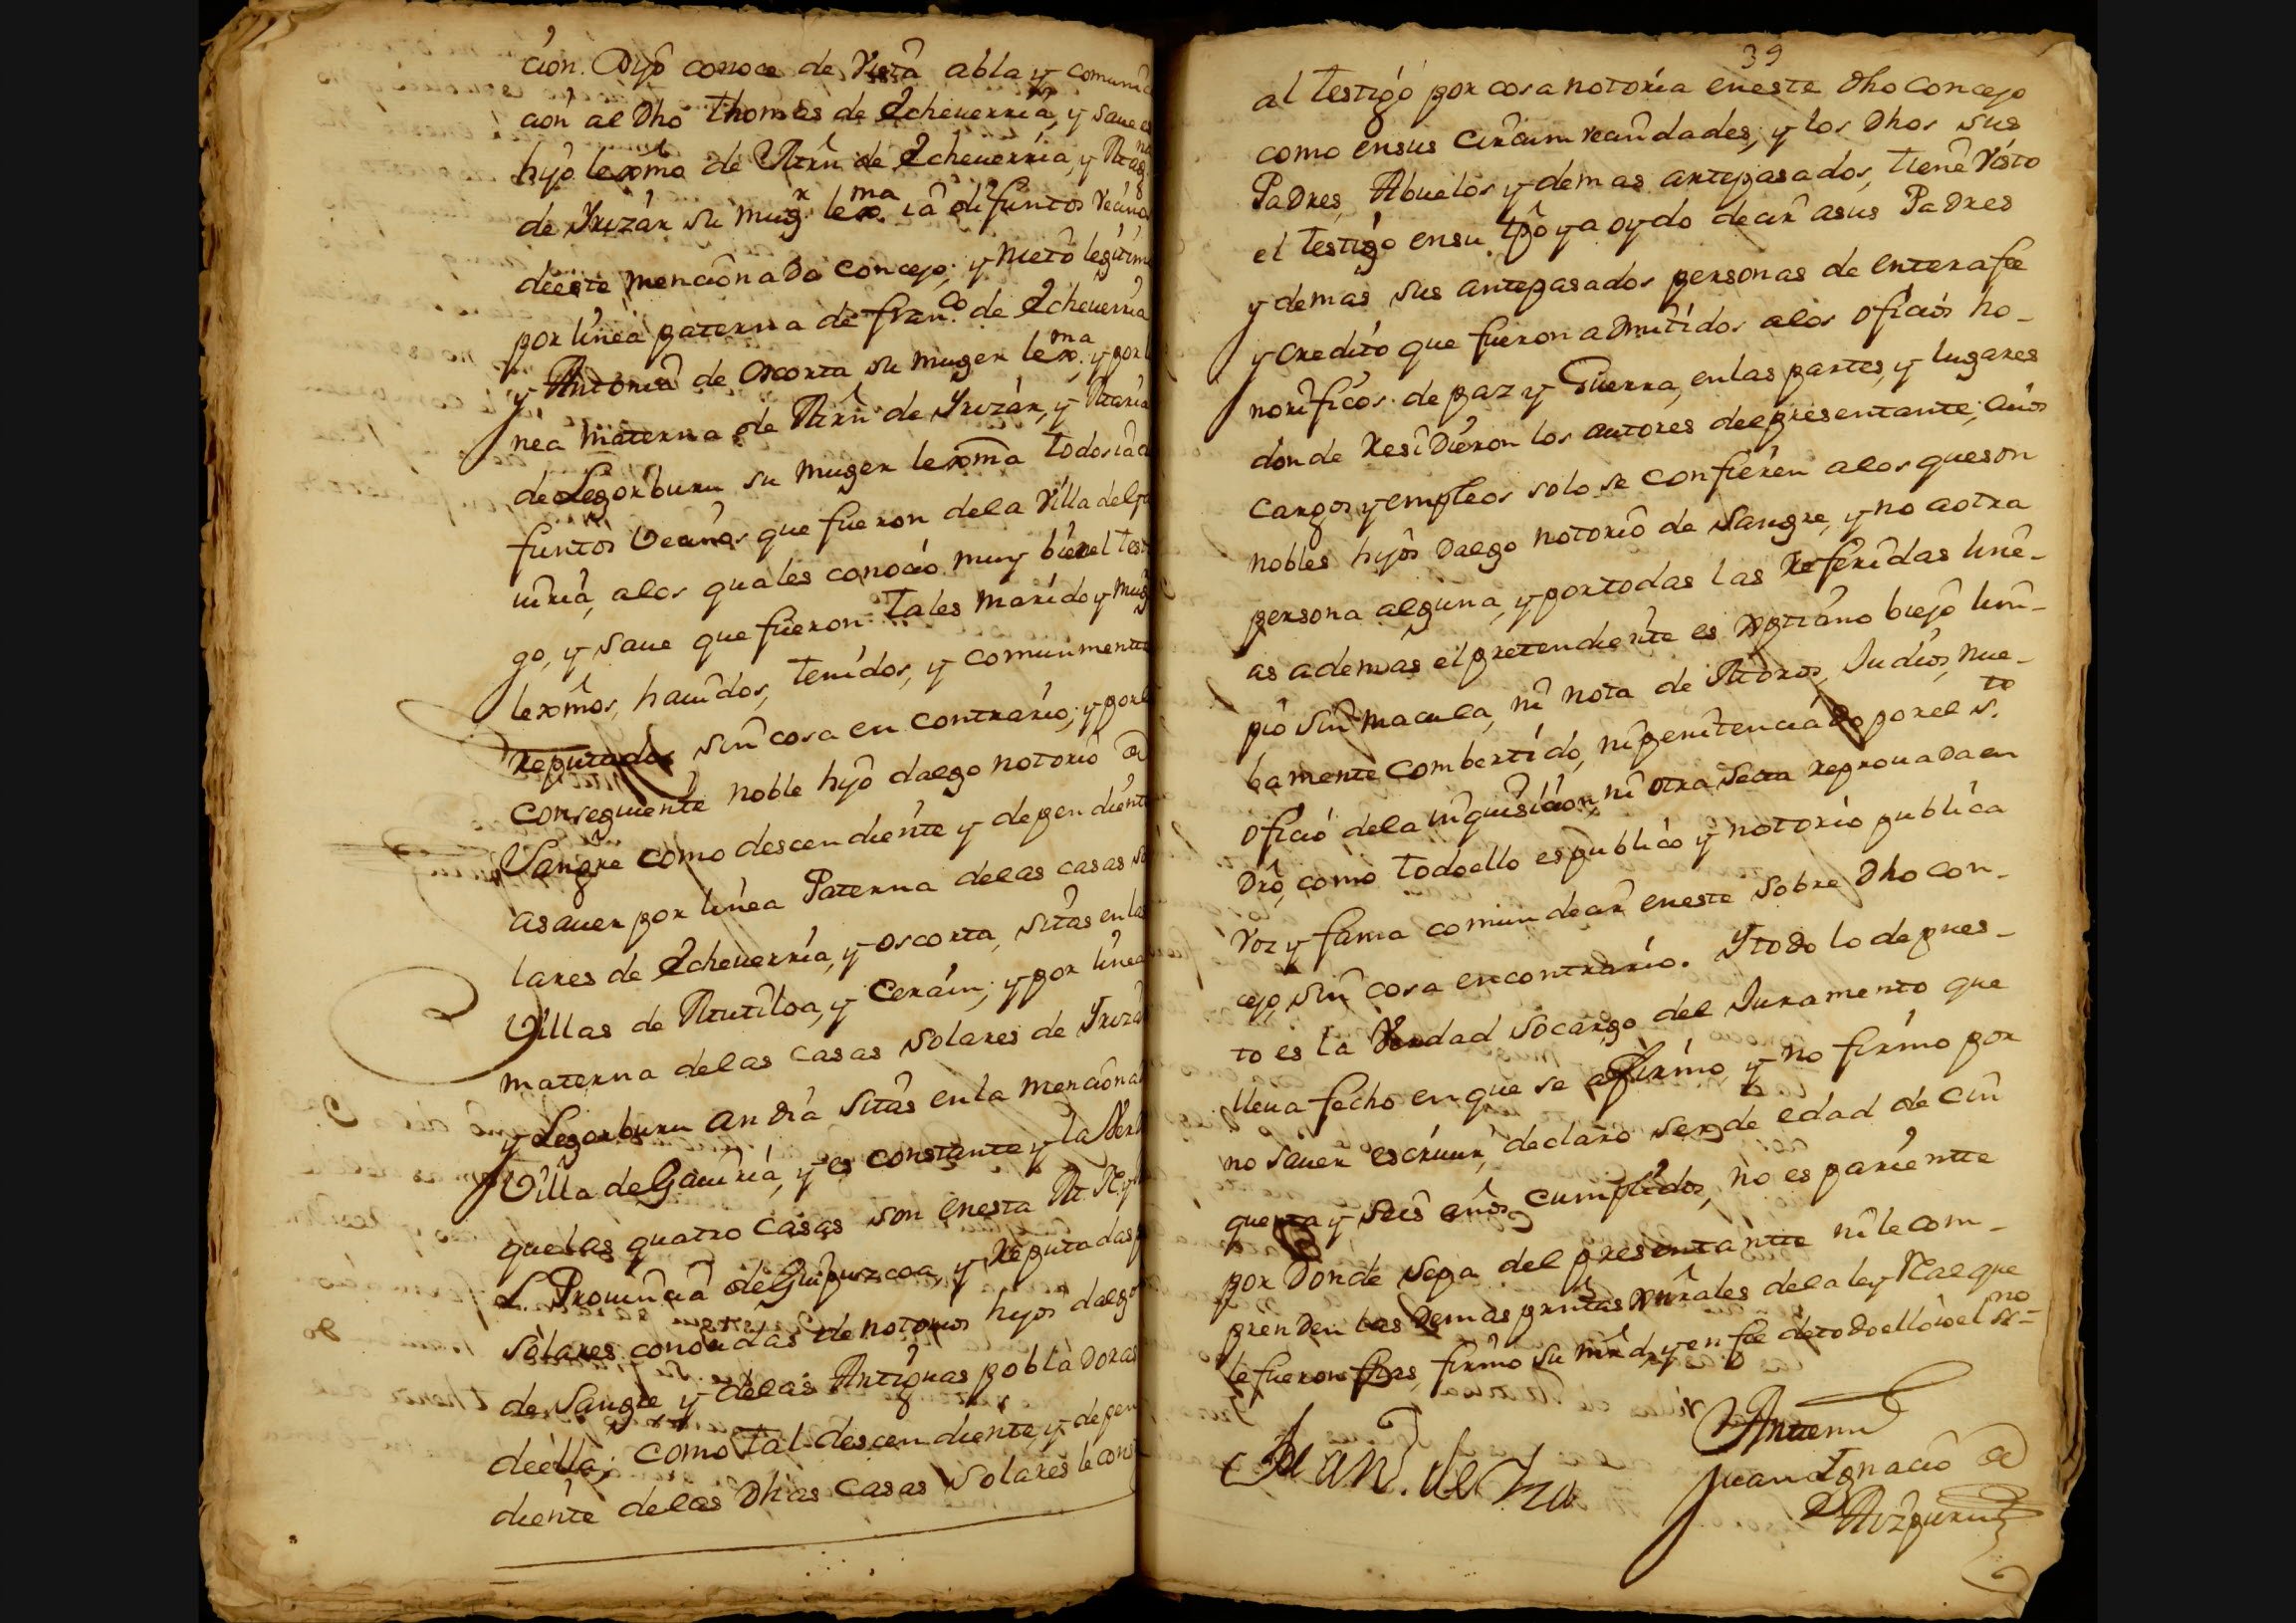 cion. Dijo conoce de Vista abla y comunica
cion al Dho Thomas de Echeuerria, y saue es
hijo lexmo de Mrn de Echeuerria, y Mana
de Yrizar su mugr lexma ia difuntos Vecinos
deeste mencionado concejo; y nieto legitimo
por linea paterna de franco de Echeuerria
y Antonia de Oscorta su muger lexma; y por li
nea materna de Mrn de Yrizar, y Maria
de Legorburu su muger lexma todos ia di
funtos Vecinos que fueron dela Villa de Ga
uiria, alos quales conocio muy bien el testi
go, y saue que fueron tales marido y mugr
lexmos, hauidos, tenidos, y comunmente
reputados sin cosa en contrario; y por el
consequiente noble hijo dalgo notorio de
Sangre como descendiente y dependiente
asauer por linea Paterna delas casas so
lares de Echeuerria, y oscorta, sitas en las
Villas de Mutiloa, y Cerain; y por linea
materna delas casas solares de Yrizar
y Legorburu andia sitas enla menciona
Villa de Gauiria, y es constante y la Verd
quelas quatro casas son enesta M. N. y M
L Prouincia de Guipuzcoa, y Reputadas p
solares conocidas de notorios hijos dalgo
de Sangre y delas Antiguas pobladoras
deella; como tal descendiente, y depen
diente delas Dhas casas solares le const
39
al testigo por cosa notoria eneste Dho Concejo
como ensus circumvecindades; y los Dhos sus
Padres, Abuelos y demas antepasados, tiene Visto
el testigo ensu tpo y a oydo decir asus Padres
y demas sus antepasados personas de entera fee
y credito que fueron admitidos alos oficios ho-
norificos de paz y Guerra, enlas partes, y lugares
donde Residieron los autores del presentante; cuios
cargos y empleos solo se confieren alos que son
nobles hijos dalgo notorio de Sangre, y no a otra
persona alguna, y por todas las Referidas line-
as ademas el pretendiente es xptiano biejo lim-
pio sin macula, ni nota de Moros, Judios, nue-
bamente combertido, ni penitenciado por el sto
oficio dela inquisicion, ni otra secta reprouada en
Dro, como todo ello es publico y notorio publica
Voz y fama comun decir eneste sobre Dho con-
cejo, sin cosa en contrario. Y todo lo depues-
to es la Verdad so cargo del Juramento que
lleua fecho en que se afirmo, y no firmo por
no sauer escriuir, declaro ser de edad de cin
quenta y seis años cumplidos, no es pariente
por donde sepa del presentante ni le com-
prenden las demas prntas xnrales dela ley Real que
le fueron fhas, firmo su mrd, y en fee de todo ello io el sno =
Juan. de
Antemi
Juan Ignacio de
Aizpuru